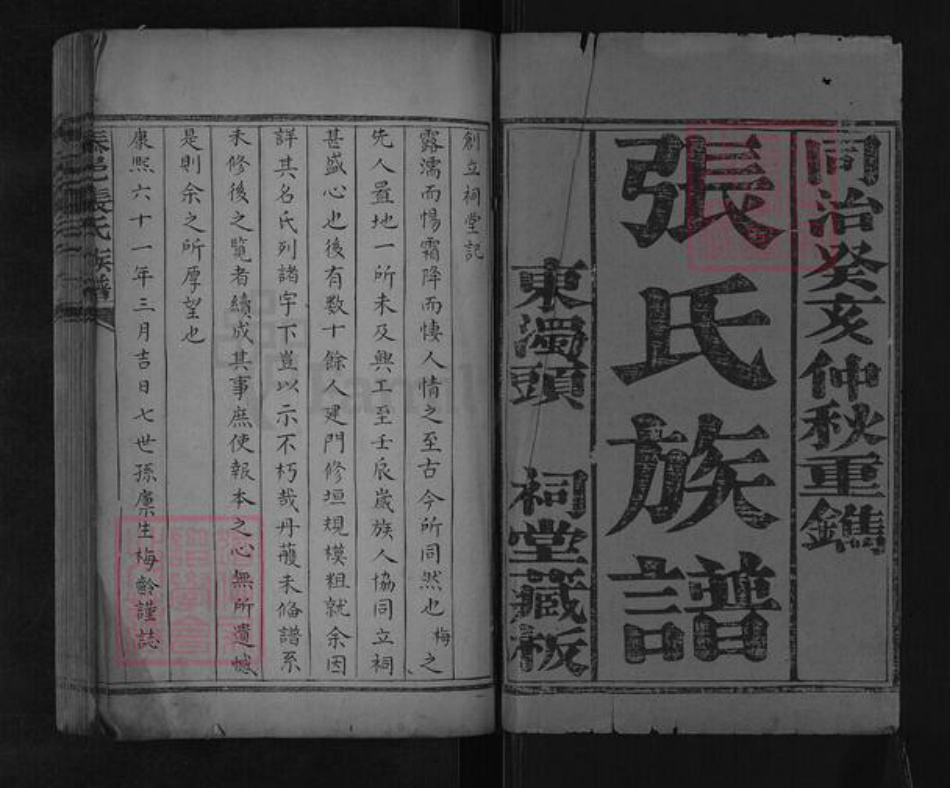 同治癸亥仲秋重鐫
張氏族譜
東濁頭 祠堂藏板
創立祠堂記
露濡而惕霜降而悽人情之至古今所同然也梅之
先人置地一所未及興工至壬辰歲族人協同立祠
甚盛心也後有数十餘人建門修垣規模粗就余因
詳其名氏列諸字下豈以示不朽哉丹雘未俻譜系
未修後之覽者續成其事庶使報本之心無所遺憾
是則余之所厚望也
康熙六十一年三月吉日七世孫廪生梅齡謹誌
張氏族譜